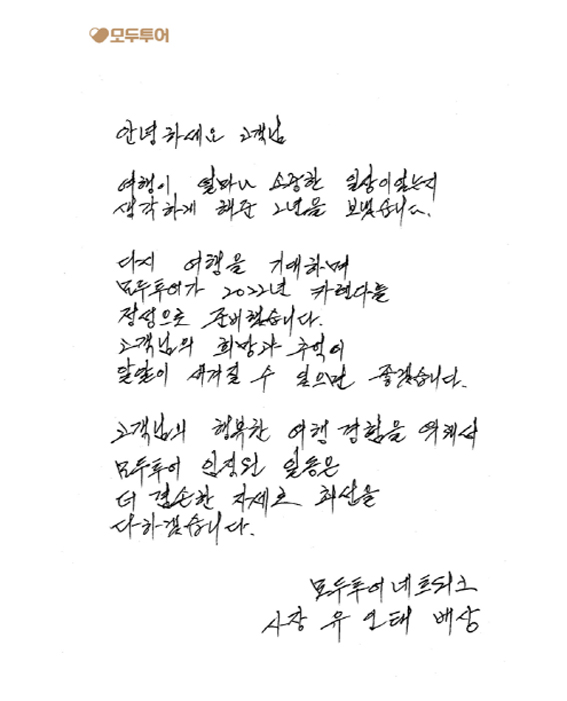 모두투어
안녕하세요 고객님
여행이 얼마나 소중한 일상이었는지
생각하게 해준 2년을 보냈습니다.
다시 여행을 기대하며
모두투어가 2022년 카렌다를
정성으로 준비했습니다.
고객님의 희망과 추억이
알알이 새겨질 수 있으면 좋겠습니다.
고객님의 행복한 여행 경험을 위해서
모두투어 임직원 일동은
더 겸손한 자세로 최선을
다하겠습니다.
모두투어네트워크
사장 유 인태 배상